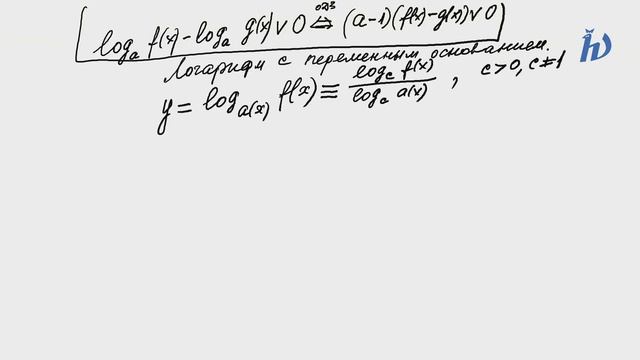 log_a f(x) - log_a g(x) ∨ 0 ⇔ (a-1)(f(x)-g(x)) ∨ 0
ОДЗ
Логарифм с переменным основанием.
y = log_{a(x)} f(x) ≡ log_c f(x) / log_c a(x) , c>0, c≠1